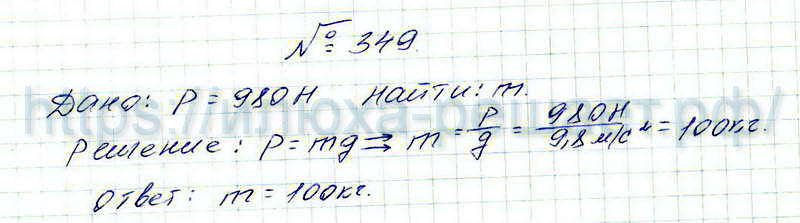 № 349.
Дано: P = 980 Н найти: m.
Решение: P = mg ⇒ m = P/g = 980 Н / 9,8 м/с² = 100кг.
Ответ: m = 100кг.
https://илюха-решист.рф/